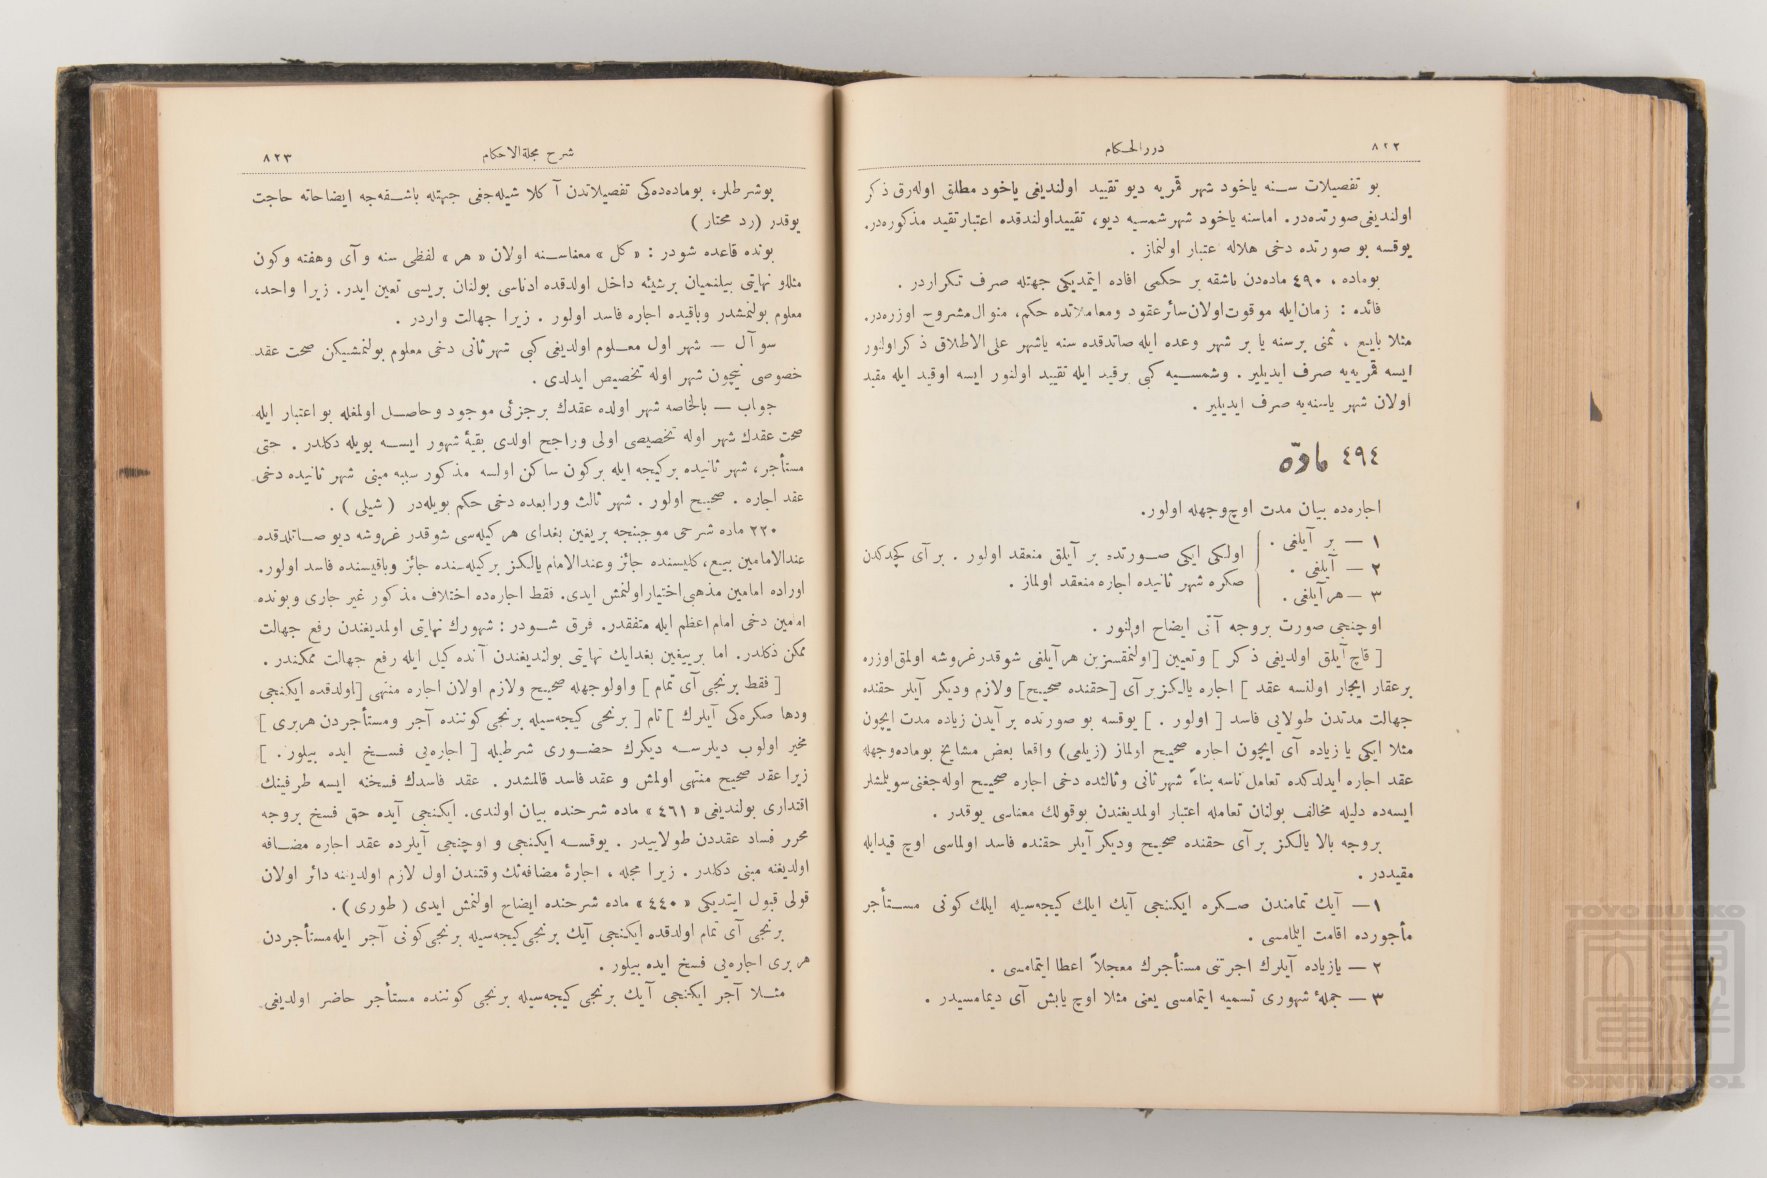 ٨٢٢
دررالحكام
بو تفصيلات سنه ياخود شهر قمريه ديو تقييد اولنديغى ياخود مطلق اوله‌رق ذكر
اولنديغى صورتده‌در. اماسنه ياخود شهر شمسيه ديو، تقييداولندقده اعتبار تقيد مذكوره‌در.
يوقسه بو صورتده دخى هلاله اعتبار اولنماز .
بوماده ، ٤٩٠ ماده‌دن باشقه بر حكمى افاده ايتمديكى جهتله صرف تكراردر .
فائده : زمان‌ايله موقوت‌اولان سائر عقود ومعاملاتده حكم، منوال مشروح اوزره‌در.
مثلا بايع ، ثمنى برسنه يا بر شهر وعده ايله صاتدقده سنه ياشهر على‌الاطلاق ذكر اولنور
ايسه قمريه‌يه صرف ايديلير . وشمسيه كبى برقيد ايله تقييد اولنور ايسه اوقيد ايله مقيد
اولان شهر ياسنه‌يه صرف ايديلير .
٤٩٤ ماده
اجاره‌ده بيان مدت اوچ‌وجهله اولور.
١ — بر آيلغى .
٢ — آيلغى .
٣ — هرآيلغى .
اولكى ايكى صورتده بر آيلق منعقد اولور . بر آى كچدكدن
صكره شهر ثانيده اجاره منعقد اولماز .
اوچنجى صورت بروجه آتى ايضاح اولنور .
[ قاچ آيلق اولديغى ذكر ] وتعيين [اولنمقسزين هرآيلغى شوقدر غروشه اولمق‌اوزره
برعقار ايجار اولنسه عقد ] اجاره يالكز بر آى [حقنده صحيح] ولازم وديكر آيلر حقنده
جهالت مدتدن طولايى فاسد [ اولور . ] يوقسه بو صورتده بر آيدن زياده مدت ايچون
مثلا ايكى يا زياده آى ايچون اجاره صحيح اولماز (زيلعى) واقعا بعض مشايخ بوماده‌وجهله
عقد اجاره ايدلدكده تعامل ناسه بناءً شهر ثانى وثالثده دخى اجاره صحيح اوله‌جغنى سويلمشلر
ايسه‌ده دليله مخالف بولنان تعامله اعتبار اولمديغندن بوقولك معناسى يوقدر .
بروجه بالا يالكز بر آى حقنده صحيح وديكر آيلر حقنده فاسد اولماسى اوچ قيدايله
مقيددر .
١ — آيك تمامندن صكره ايكنجى آيك ايلك كيجه‌سيله ايلك كونى مستأجر
مأجورده اقامت ايلمامسى .
٢ — يازياده آيلرك اجرتنى مستأجرك معجلاً اعطا ايتمامسى .
٣ — جملهٔ شهورى تسميه ايتمامسى يعنى مثلا اوچ يابش آى ديمامسيدر .
شرح مجلة الاحكام
٨٢٣
بوشرطلر، بوماده‌ده‌كى تفصيلاتدن آكلاشيله‌جغى جهتله باشقه‌جه ايضاحاته حاجت
يوقدر (رد محتار)
بونده قاعده شودر : « كل » معناسنه اولان « هر » لفظى سنه و آى وهفته وكون
مثللو نهايتى بيلنميان برشيئه داخل اولدقده ادناسى بولنان بريسى تعين ايدر. زيرا واحد،
معلوم بولنمشدر وباقيده اجاره فاسد اولور . زيرا جهالت واردر .
سوآل — شهر اول معلوم اولديغى كبى شهر ثانى دخى معلوم بولنمشيكن صحت عقد
خصوصى نيچون شهر اوله تخصيص ايدلدى .
جواب — بالخاصه شهر اولده عقدك برجزئى موجود وحاصل اولمغله بو اعتبار ايله
صحت عقدك شهر اوله تخصيصى اولى وراجح اولدى بقيهٔ شهور ايسه بويله دكلدر . حتى
مستأجر، شهر ثانيده بركيجه ايله بركون ساكن اولسه مذكور سببه مبنى شهر ثانيده دخى
عقد اجاره . صحيح اولور . شهر ثالث ورابعده دخى حكم بويله‌در ( شبلى ) .
٢٢٠ ماده شرحى موجبنجه بريغين بغداى هر كيله‌سى شوقدر غروشه ديو صاتلدقده
عندالامامين بيع، كليسنده جائز وعندالامام يالكز بركيله‌سنده جائز وباقيسنده فاسد اولور.
اوراده امامين مذهبى‌اختياراولنمش ايدى. فقط اجاره‌ده اختلاف مذكور غير جارى وبونده
امامين دخى امام اعظم ايله متفقدر. فرق شودر : شهورك نهايتى اولمديغندن رفع جهالت
ممكن دكلدر. اما بريغين بغدايك نهايتى بولنديغندن آنده كيل ايله رفع جهالت ممكندر .
[ فقط برنجى آى تمام ] واولوجهله صحيح ولازم اولان اجاره منتهى [اولدقده ايكنجى
ودها صكره‌كى آيلرك ] تام [ برنجى كيجه‌سيله برنجى كوننده آجر ومستأجردن هربرى ]
مخير اولوب ديلرسه ديكرك حضورى شرطيله [ اجاره‌يى فسخ ايده بيلور. ]
زيرا عقد صحيح منتهى اولمش و عقد فاسد قالمشدر . عقد فاسدك فسخنه ايسه طرفينك
اقتدارى بولنديغى « ٤٦١ » ماده شرحنده بيان اولندى. ايكنجى آيده حق فسخ بروجه
محرر فساد عقددن طولاييدر . يوقسه ايكنجى و اوچنجى آيلرده عقد اجاره مضافه
اولديغنه مبنى دكلدر . زيرا مجله ، اجارهٔ مضافه‌نك وقتندن اول لازم اولديغنه دائر اولان
قولى قبول ايتديكى « ٤٤٠ » ماده شرحنده ايضاح اولنمش ايدى ( طورى ) .
برنجى آى تمام اولدقده ايكنجى آيك برنجى كيجه‌سيله برنجى كونى آجر ايله‌مستأجردن
هر برى اجاره‌يى فسخ ايده بيلور .
مثلا آجر ايكنجى آيك برنجى كيجه‌سيله برنجى كوننده مستأجر حاضر اولديغى
TOYO BUNKO
TOYO BUNKO